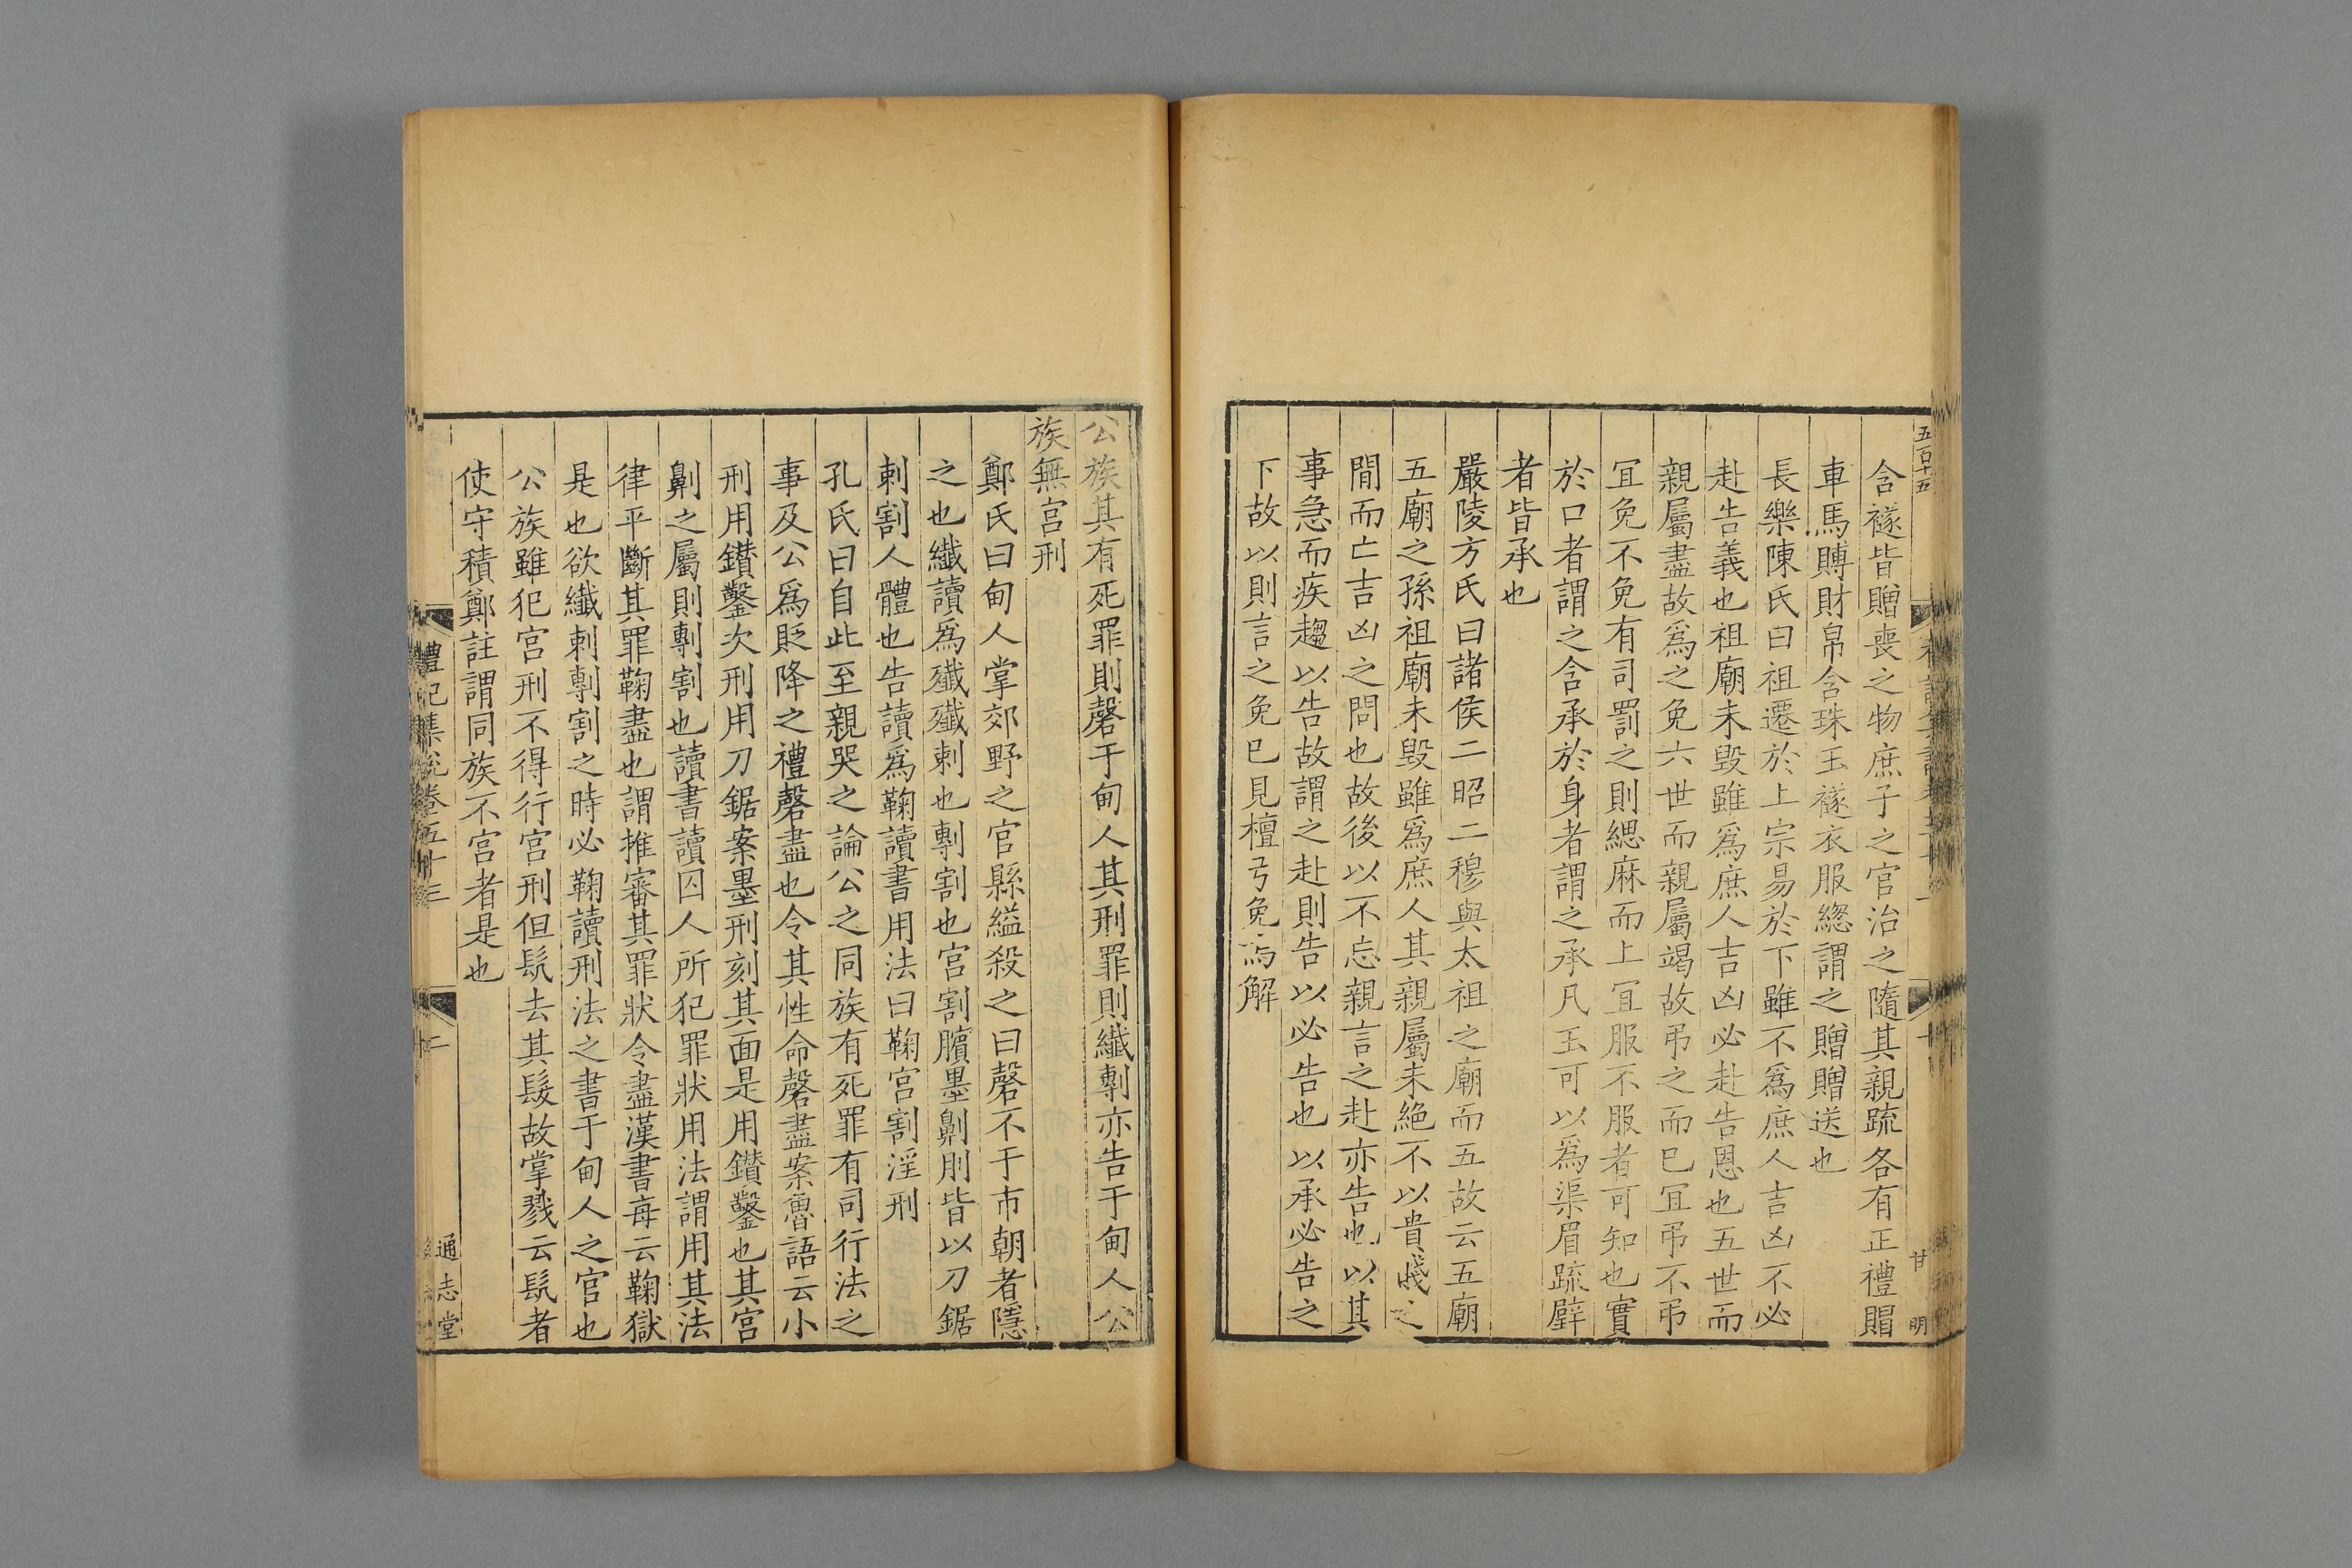 五百十五
含襚皆贈喪之物庶子之官治之隨其親疏各有正禮賵
車馬賻財帛含珠玉襚衣服緫謂之贈贈送也
長樂陳氏曰祖遷於上宗易於下雖不為庶人吉凶不必
赴告義也祖廟未毀雖為庶人吉凶必赴告恩也五世而
親屬盡故為之免六世而親屬竭故弔之而已冝弔不弔
冝免不免有司罰之則緦麻而上冝服不服者可知也實
於口者謂之含承於身者謂之承凡玉可以為渠眉疏壁
者皆承也
嚴陵方氏曰諸侯二昭二穆與太祖之廟而五故云五廟
五廟之孫祖廟未毀雖為庶人其親屬未絶不以貴賤之
間而亡吉凶之問也故後以不忘親言之赴亦告也以其
事急而疾趨以告故謂之赴則告以必告也以承必告之
下故以則言之免已見檀弓免焉解
甘明
公族其有死罪則磬于甸人其刑罪則纎剸亦告于甸人公
族無宫刑
鄭氏曰甸人掌郊野之官縣縊殺之曰磬不于市朝者隱
之也纎讀為殱殱刺也剸割也宫割臏墨劓刖皆以刀鋸
刺割人體也告讀為鞠讀書用法曰鞠宫割淫刑
孔氏曰自此至親哭之論公之同族有死罪有司行法之
事及公為貶降之禮磬盡也令其性命磬盡案魯語云小
刑用鑽鑿次刑用刀鋸案墨刑刻其面是用鑽鑿也其宫
劓之屬則剸割也讀書讀囚人所犯罪狀用法謂用其法
律平斷其罪鞠盡也謂推審其罪狀令盡漢書每云鞠獄
是也欲纎刺剸割之時必鞠讀刑法之書于甸人之官也
公族雖犯宫刑不得行宫刑但髡去其髮故掌戮云髡者
使守積鄭註謂同族不宫者是也
禮記集說卷五十三
十二
通志堂